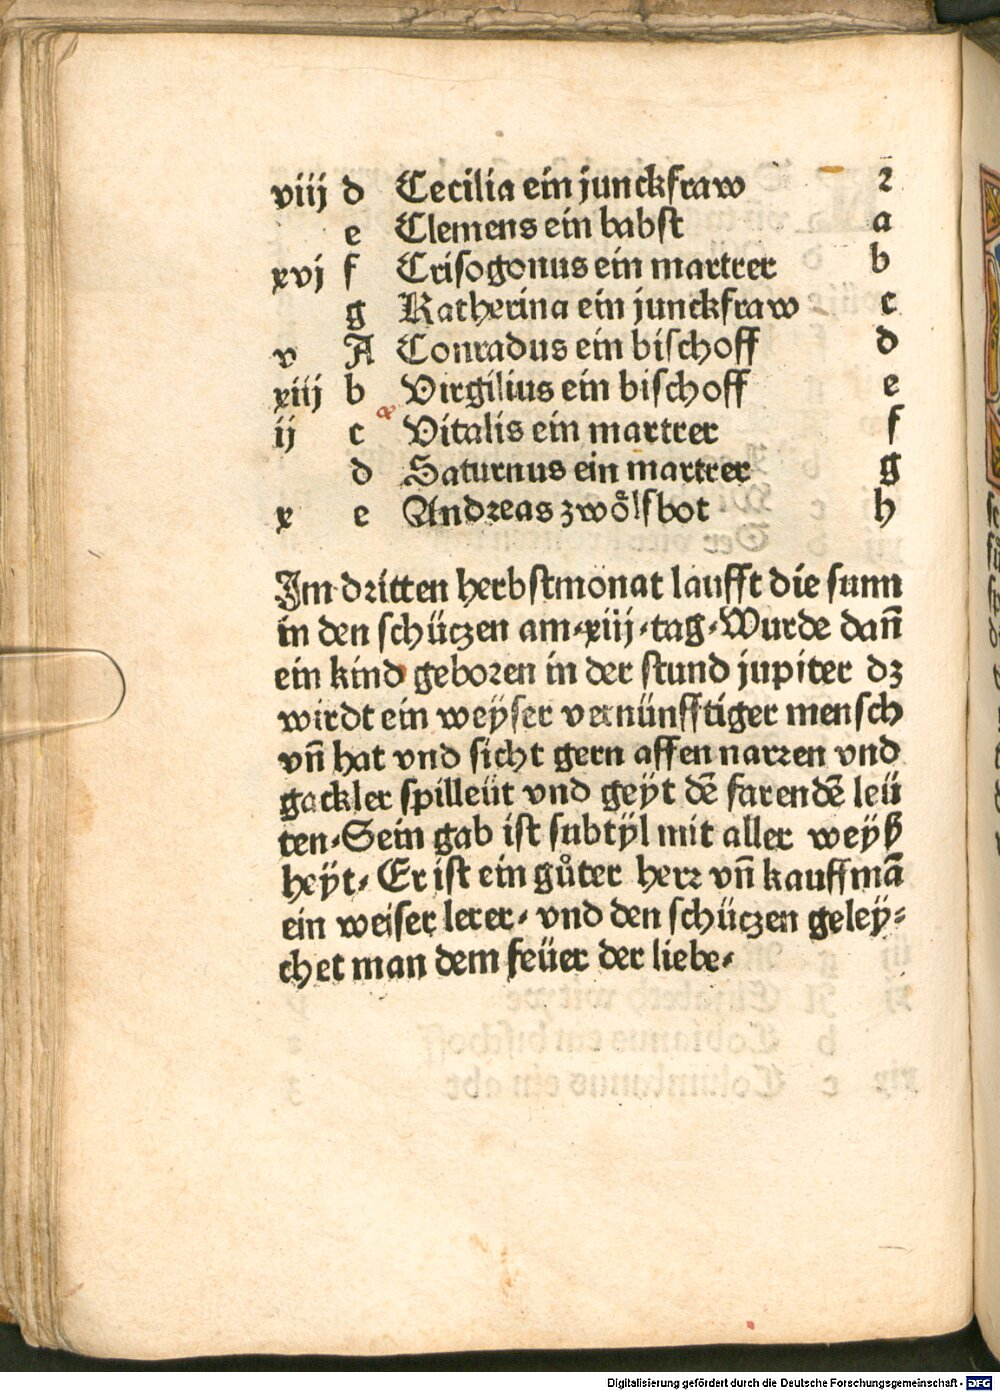 viij d Cecilia ein junckfraw 2
e Clemens ein babst a
xvj f Crisogonus ein martrer b
g Katherina ein junckfraw c
v A Conradus ein bischoff d
xiij b Virgilius ein bischoff e
ij c Vitalis ein martrer f
d Saturnus ein martrer g
x e Andreas zwoͤlfbot h
Im dritten herbstmonat laufft die sunn
in den schüczen am·xiij·tag·Wurde dañ
ein kind geboren in der stund jupiter dz
wirdt ein weÿser vernünfftiger mensch
vñ hat vnd sicht gern affen narren vnd
gackler spilleüt vnd geÿt dē farendē leü
ten·Sein gab ist subtÿl mit aller weÿß
heÿt· Er ist ein gůter herr vñ kauffmā
ein weiser lerer· vnd den schüczen geleÿ⸗
chet man dem feüer der liebe·
Digitalisierung gefördert durch die Deutsche Forschungsgemeinschaft - DFG